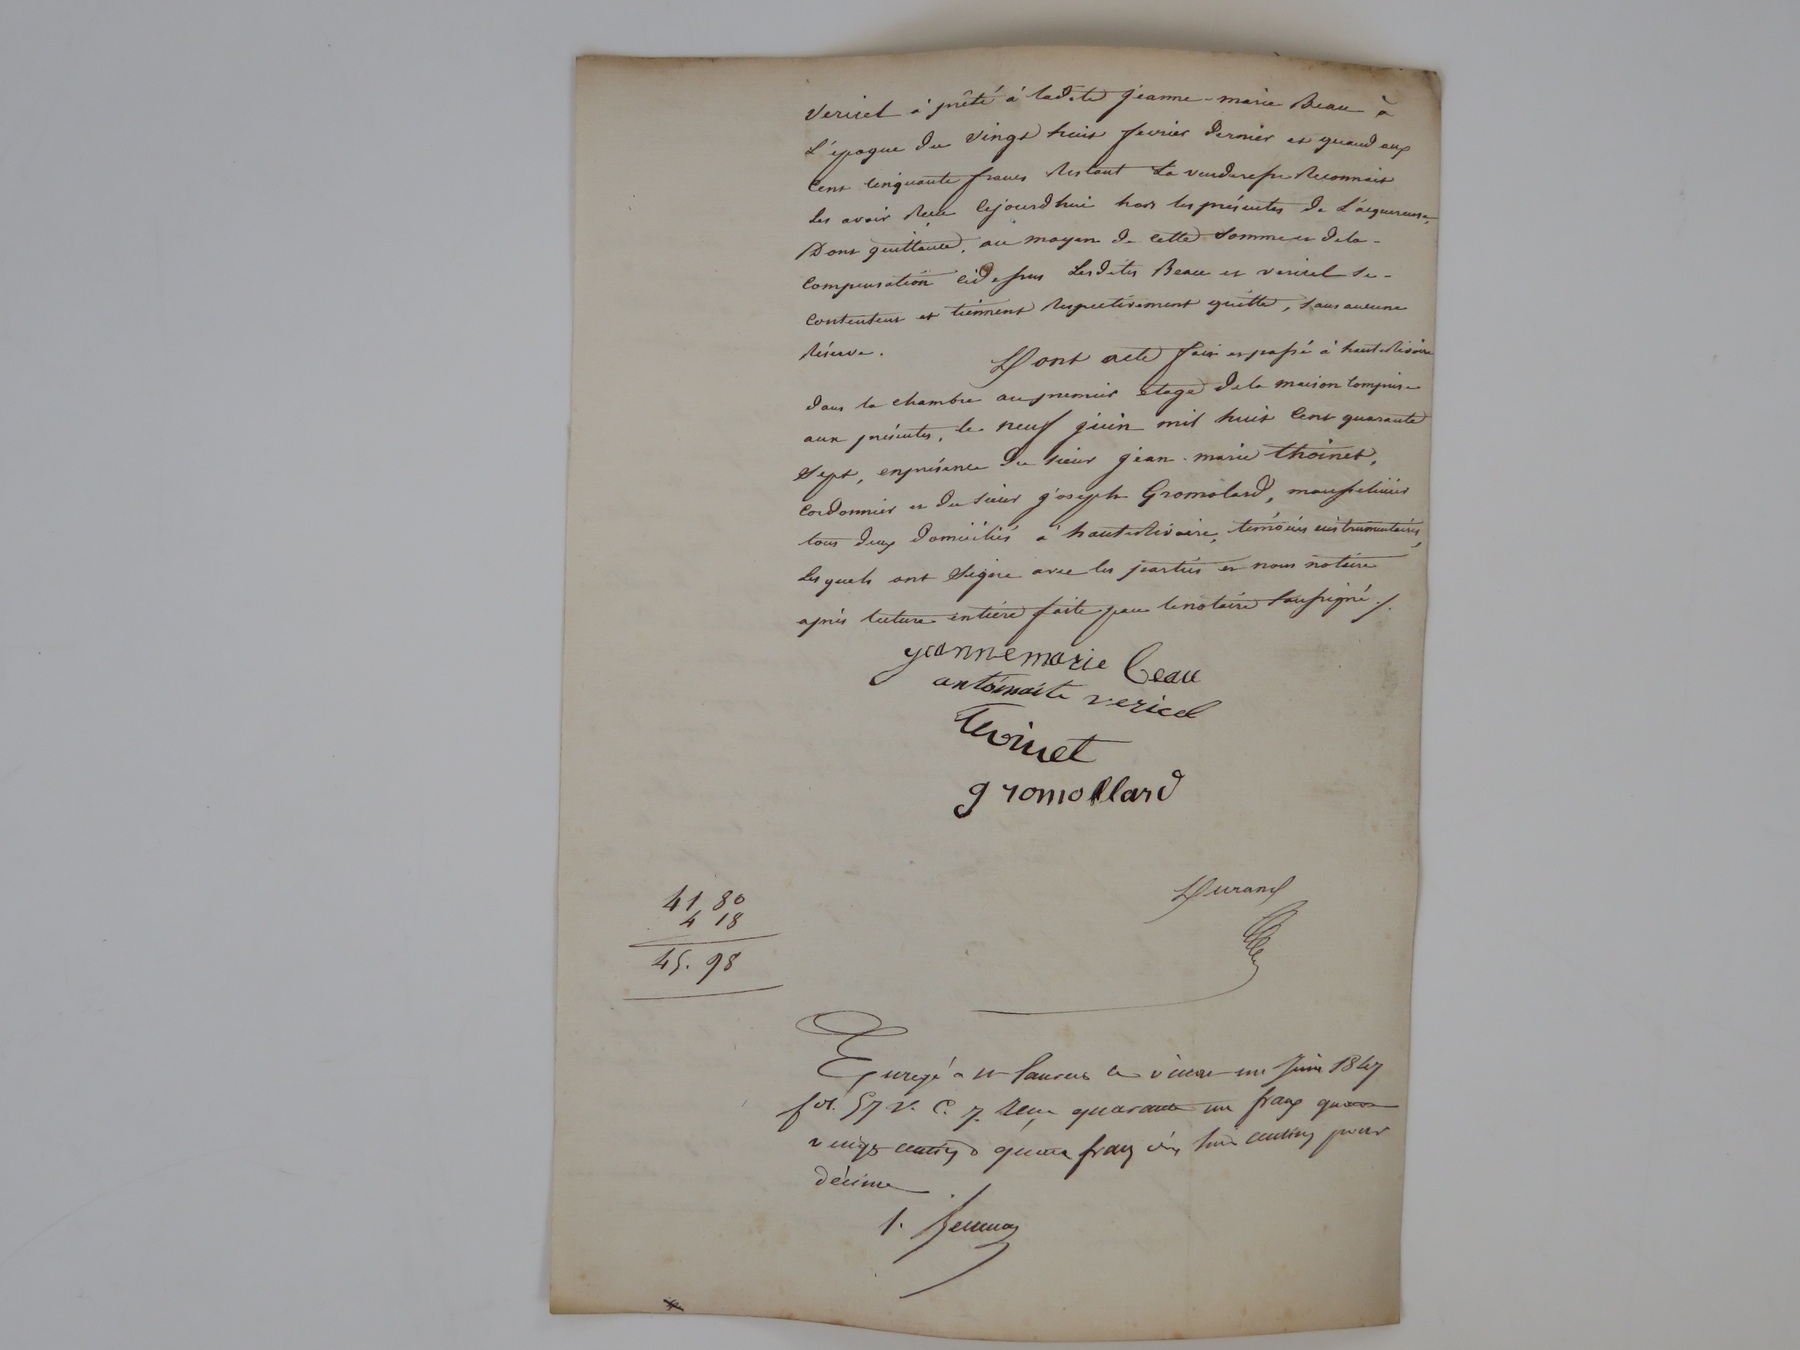 Vericel à prêté à ladite jeanne-marie Beau à
L'époque du vingt huit fevrier dernier et quand aux
Cent cinquante francs restant la venderesse reconnait
Les avoir reçu cejourdhui hors les présentes de L'acquereuse,
Dont quittance, au moyen de cette somme et dela
compensation cidessus Lesdites Beau et vericel se
contentent et tiennent respectivement quitte, sans aucune
réserve.
Dont acte fait et passé à hauterivoire
dans la chambre au premier étage dela maison comprise
aux présentes, le neuf juin mil huit cent quarante
Sept, enprésence du sieur jean-marie thoinet,
cordonnier et du sieur joseph Gromolard,
tous deux domiciliés à hauterivoire, temoins instrumentaires,
Lesquels ont signé avec les parties et nous notaire
après lecture entière faite par lenotaire soussigné ./.
jeannemarie beau
antoinaite vericel
thoinet
gromollard
Durand
41 80
4 18
45. 98
Enregé à St Laurent le vingt un Juin 1847
fol. 57 V. C. 7. Reçu quarante un francs quatre
vingt centimes quatre francs dix huit centimes pour
décime